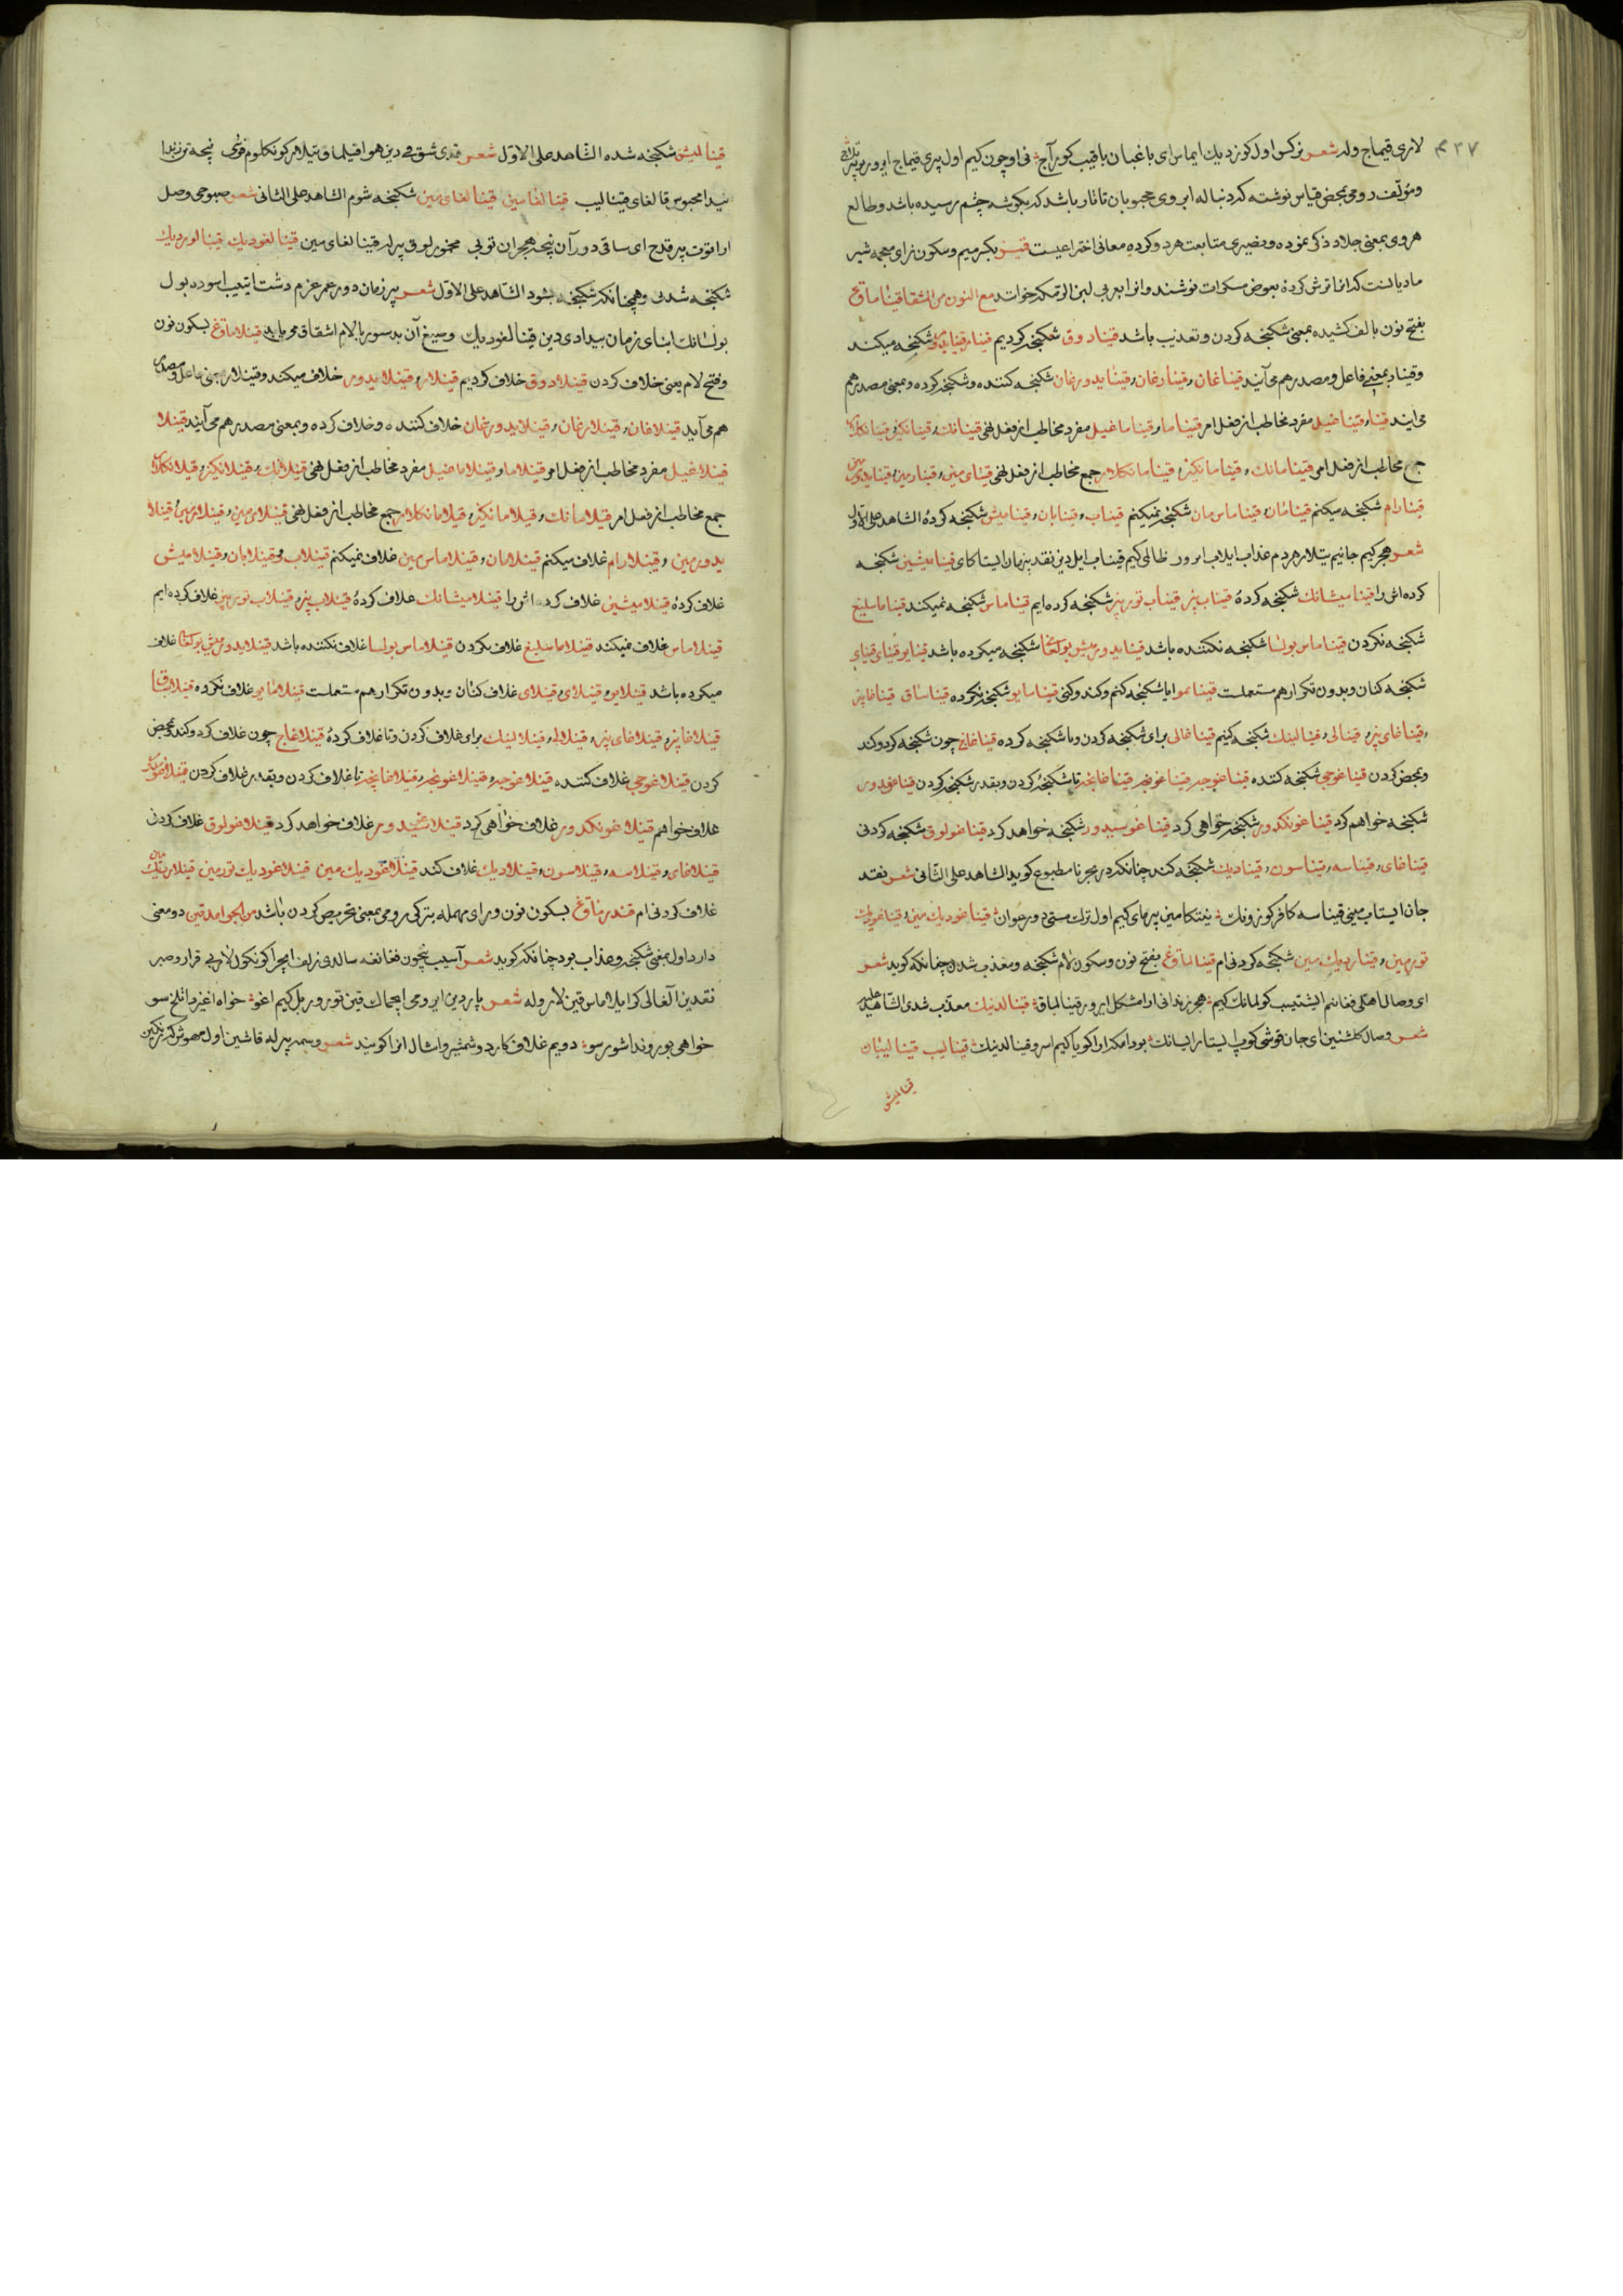 ۳۲۷
لاری قیماج وله شعر نرکس اول کوزدیك ایماس ای باغبان باقیب کور آچ نی اوچون کیم اول پری قیماج ایرور
ومؤلف رومی بمحض قیاس نوشته که دنباله ابروی محبوبان تاتار باشد که بکوشه چشم رسیده باشد وطالع
هروی بمعنی جلاد ذکر نموده ونصیری متابعت هردو کرده معانی اختراعیست قمیز بکسر میم وسکون زای معجمه شیر
مادیانست که انرا ترش کرده بعوض مسکرات نوشند وانرا بعربی لبن الرمکه خوانند مع النون من المشتقات قیناماق
بفتح نون بالف کشیده بمعنی شکنجه کردن وتعذیب باشد قینادوق شکنجه کردیم قینار شکنجه میکند
وقینار بمعنی فاعل ومصدر هم می آیند قیناغان وقینارغان وقینایدورغان شکنجه کننده وشکنجه کرده وبمعنی مصدر هم
می ایند قینا وقیناغیل مفرد مخاطب از فعل امر قیناما وقیناماغیل مفرد مخاطب از فعل نهی قینانك وقینانکیز وقینانکلار
جمع مخاطب از فعل امر قینامانك وقینامانکیز وقینامانکلار جمع مخاطب از فعل نهی قینای مین وقینارمین وقینایدورمین
قینارام شکنجه میکنم قینامان وقیناماس مان شکنجه نمیکنم قیناب وقینابان وقینامیش شکنجه کردۀ الشاهد علی الاول
شعر هجر کیم جانیم تیلار هردم عذاب ایلاب ایرور ظالمی کیم قیناب ایل دین نقد پنهان ایستاکای قینامیشین شکنجه
کرده اش را قینامیشانك شکنجه کردۀ قیناب بیز قیناب توربیز شکنجه کرده ایم قیناماس شکنجه نمیکند قیناماسلیغ
شکنجه نکردن قیناماس بولسا شکنجه نکننده باشد قینایدورمیش بولغا شکنجه میکرده باشد قینایو قینای قینای
شکنجه کنان وبدون تکرار هم مستعملست قینایمو ایا شکنجه کنم وکند وکنی قینامایو شکنجه نکرده قیناساق قیناغابیز
وقیناغای بیز وقینالی وقینالینك شکنجه کنیم قیناغالی برای شکنجه کردن وتا شکنجه کرده قیناغاچ چون شکنجه کرد وکند
وبمحض کردن قیناغوجی شکنجه کننده قیناغوچه قیناغونچه قیناغانچه تا شکنجه کردن وبقدر شکنجه کردن قیناغومدور
شکنجه خواهم کرد قیناغونکدور شکنجه خواهی کرد قیناغوسیدور شکنجه خواهد کرد قیناغولوق شکنجه کردنی
قیناغای وقیناسه وقیناسون وقینادیك شکنجه کند چنانکه در بحر نامطبوع کوید الشاهد علی الثانی شعر نقد
جان ایستاب مینی قیناسه کافر کوزونك نیتکامین پرمای کیم اول ترك مستی دور عوان قیناغودیك مین وقیناغودیك
تورمین وقیناردیك مین شکنجه کردنی ام قینالماق بفتح نون وسکون لام شکنجه ومعذب شدن چنانکه کوید شعر
ای وصال اهلی فغانیم ایشتیب کولمانك کیم هجر زندانی ارا مشکل ایرور قینالماق قینالدینك معذب شدی الشاهد علیه
شعر وصال کلشنین ای جان قوشی کوپ ایستار ایسانك بو دامکه ارا کویا کیم اسرو قینالدینك قینالیب قینالیبان
قینالمیش
قینالمیش شکنجه شده الشاهد علی الاول شعر قدی شق فی دین هوا قیلماق تیلار کونکلوم قوشی نیچه
نیدا محبوس قالغای قینالیب قینالغامین قینالغای مین شکنجه شوم الشاهد علی الثانی شعر صبوحی وصل
ارا توت پیر قدح ای ساقی دورآن نیچه هجران تونی مخمورلوق بیرله قینالغای مین قینالغودیك قینالوردیك
شکنجه شدنی وهمچنانکه شکنجه بشود الشاهد علی الاول شعر پیر زمان دور عمر عزم دشت ایتیب اسوده بول
بولسانك ابنای زمان بیدادی دین قینالغودیك وصیغ آن بدستور بالام اشتقاق می یابد قینلاماق بسکون نون
وفتح لام یعنی غلاف کردن قینلادوق غلاف کردیم قینلار قینلایدور غلاف میکند وقینلار بمعنی فاعل ومصدر
هم می آید قینلاغان وقینلارغان وقینلایدورغان غلاف کننده وغلاف کرده وبمعنی مصدر هم می آیند قینلا
قینلاغیل مفرد مخاطب از فعل امر قینلاما وقینلاماغیل مفرد مخاطب از فعل نهی قینلانك وقینلانکیز وقینلانکلار
جمع مخاطب از فعل امر قینلامانك وقینلامانکیز وقینلامانکلار جمع مخاطب از فعل نهی قینلای مین وقینلارمین قینلا
یدورمین وقینلارام غلاف میکنم قینلامان وقینلاماس مین غلاف نمیکنم قینلاب وقینلابان وقینلامیش
غلاف کردۀ قینلامیشین غلاف کرده اش را قینلامیشانك غلاف کردۀ قینلاب بیز قینلاب توربیز غلاف کرده ایم
قینلاماس غلاف نمیکند قینلاماسلیغ غلاف نکردن قینلاماس بولسا غلاف نکننده باشد قینلایدورمیش بولغا غلاف
میکرده باشد قینلایو وقینلای وقینلای غلاف کنان وبدون تکرار هم مستعملست قینلامایو غلاف نکرده قینلاساق
قینلاغابیز وقینلاغای بیز وقینلالی وقینلالینك برای غلاف کردن وتا غلاف کردۀ قینلاغاچ چون غلاف کرد وکند وبمحض
کردن قینلاغوجی غلاف کننده قینلاغوچه قینلاغونچه قینلاغانچه تا غلاف کردن وبقدر غلاف کردن قینلاغومدور
غلاف خواهم قینلاغونکدور غلاف خواهی کرد قینلاغوسیدور غلاف خواهد کرد قینلاغولوق غلاف کردنی
قینلاغای وقینلاسه وقینلاسون وقینلادیك غلاف کند قینلاغودیك مین قینلاغودیك تورمین قینلاردیك مین
غلاف کردنی ام قیندرماق بسکون نون ورای مهمله بترکی رومی بمعنی تحریص کردن باشد من الجوامد قین دو معنی
دارد اول بمعنی شکنجه وعذاب بود چنانکه کوید شعر آسیب نچون فغانغه سالدی زلف ایچرا کونکول لاربی قرار وصبر
نقدین آلغالی کر ایلاماس قین لار وله شعر یار دین ایرومی ایچماك قین تورور بل کیم اغو خواه اغیزدا تلخ سو
خواهی بوروندا شور سو دویم غلاف کارد وشمشیر وامثال انرا کویند شعر وسمه بیرله قاشین اول مهوش که رنکین